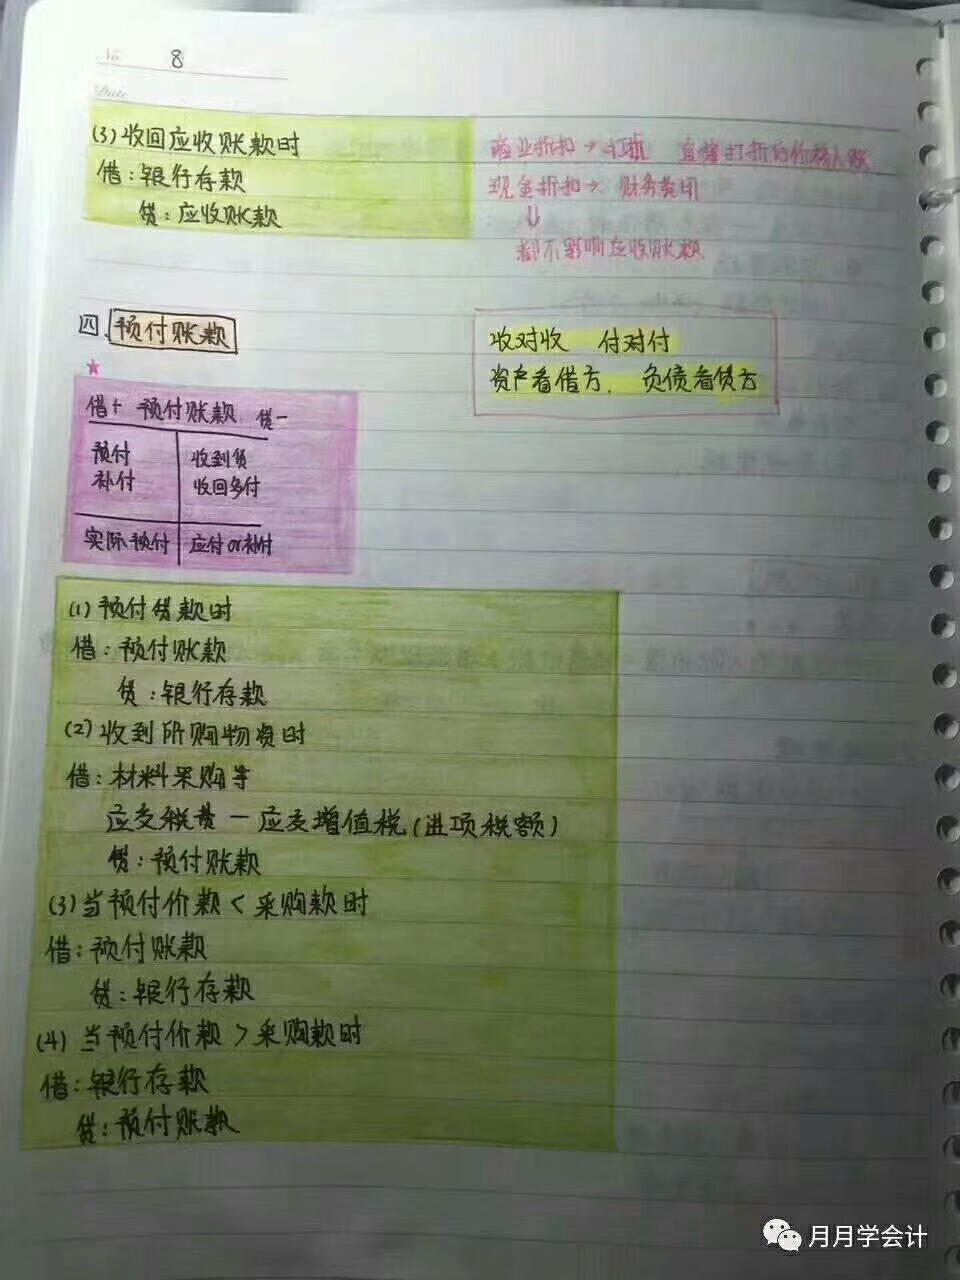 No. 8
Date
(3) 收回应收账款时
借：银行存款
贷：应收账款
商业折扣→ 直接打折后价格入账
现金折扣→ 财务费用
⇓
都不影响应收账款
四、预付账款
收对收 付对付
资产看借方、负债看贷方
★
借+ 预付账款 贷-
预付 收到货
补付 收回多付
实际预付 应付or补付
(1) 预付货款时
借：预付账款
贷：银行存款
(2) 收到所购物资时
借：材料采购等
应交税费－应交增值税(进项税额)
贷：预付账款
(3) 当预付价款＜采购款时
借：预付账款
贷：银行存款
(4) 当预付价款＞采购款时
借：银行存款
贷：预付账款
月月学会计